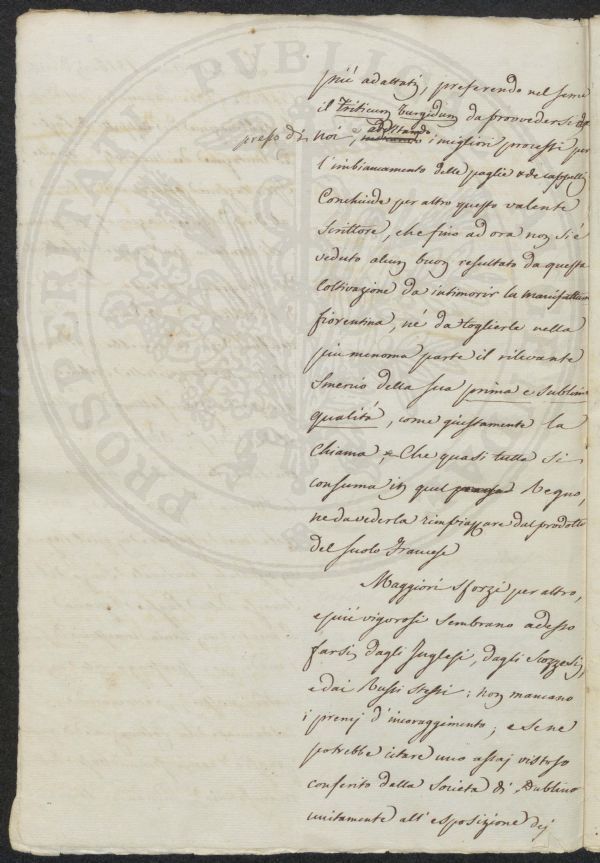 più adattati, preferendo nel seme
il Triticum Turgidum da provvedersi
presso di noi, e additando i migliori processi per
l'imbiancamento delle paglie e de cappelli
Conchiude per altro questo valente
scrittore, che fino ad ora non si é
veduto alcun buon resultato da questa
coltivazione da intimorir la manifattura
fiorentina, né da toglierle nella
piu menoma parte il rilevante
smercio della sua prima e sublime
qualità, come giustamente la
chiama, che quasi tutta si
consuma in quel Regno,
ne da vederla rimpiazzare dal prodotto
del suolo Francese
Maggiori sforzi per altro,
e più vigorosi sembrano adesso
farsi dagli Inglesi, dagli Scozzesi,
e dai Russi stessi: non mancano
i premj d'incoraggimento; e se ne
potrebbe citare uno assai vistoso
conferito dalla Societa di Dublino
unitamente all'esposizione dej
PVBLICAE
PROSPERITATI